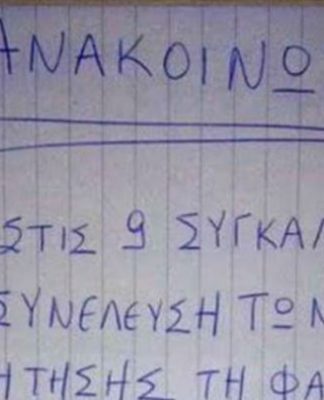 ΑΝΑΚΟΙΝΩ
ΣΤΙΣ 9 ΣΥΓΚΑΛ
ΣΥΝΕΛΕΥΣΗ ΤΩΝ
ΗΤΗΣΗΣ ΤΗ ΦΑ